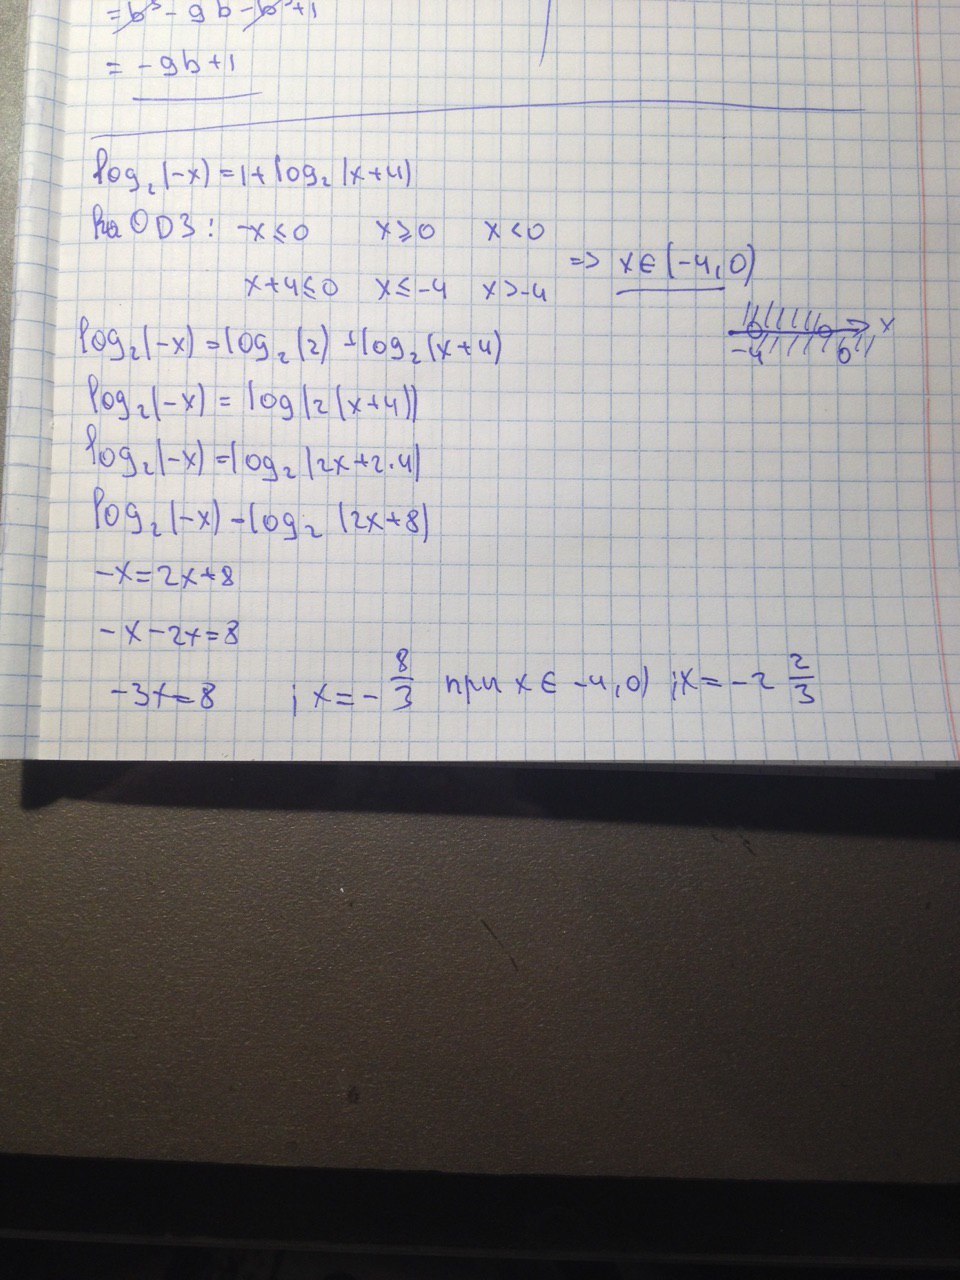 = b³ - 9b - b³ + 1
= -9b+1
log₂(-x) = 1 + log₂(x+4)
На ОДЗ: -x ≤ 0 x ≥ 0 x < 0
x+4 ≤ 0 x ≤ -4 x > -4
=> x ∈ (-4, 0)
-4 0 x
log₂(-x) = log₂(2) + log₂(x+4)
log₂(-x) = log(2(x+4))
log₂(-x) = log₂(2x+2·4)
log₂(-x) - log₂(2x+8)
-x = 2x+8
-x - 2x = 8
-3x = 8 ; x = - 8/3 при x ∈ -4, 0) ; x = -2 2/3